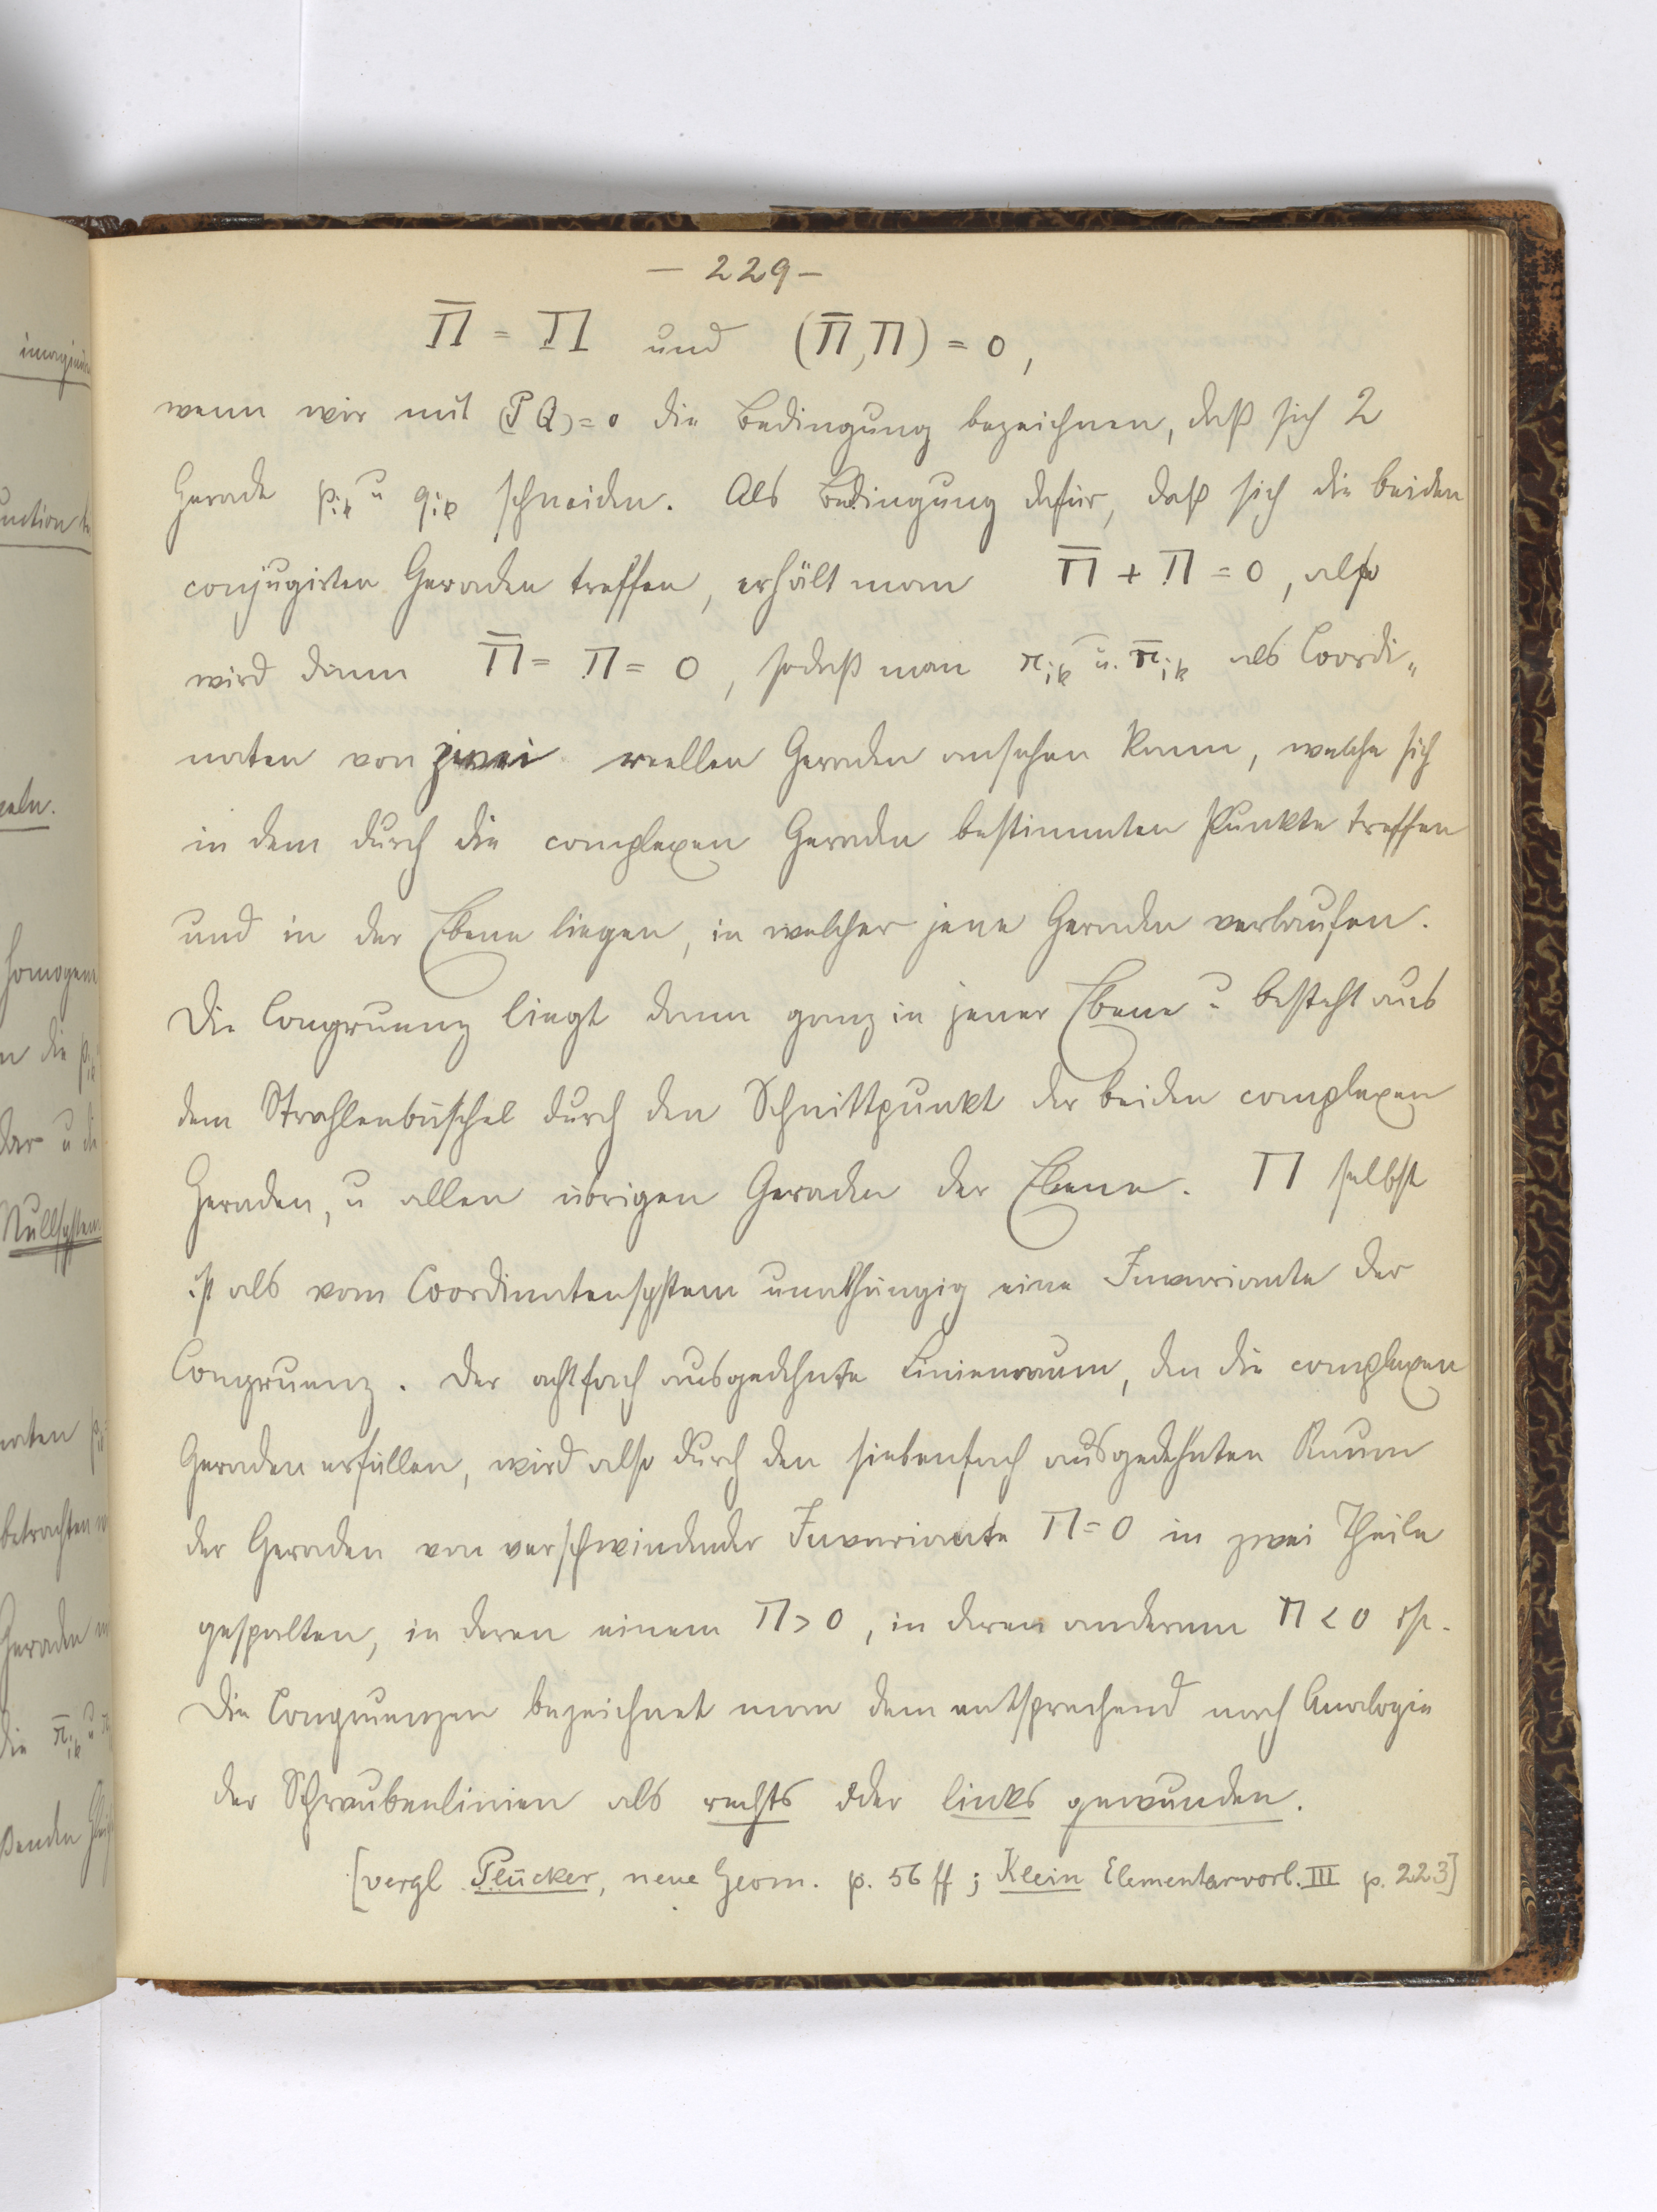 — 229 —
Π̄ = Π und (Π̄, Π) = 0,
wenn wir mit (P Q) = 0 die Bedingung bezeichnen, daß sich 2
Gerade p_ik u q_ik schneiden. Als Bedingung dafür, daß sich die beiden
conjugirten Geraden treffen, erhält man Π̄ + Π = 0, also
wird dann Π̄ = Π = 0, sodaß man π_ik u. π̄_ik als Coordi„
naten von zwei reellen Geraden ansehen kann, welche sich
in dem durch die complexen Geraden bestimmten Punkte treffen
und in der Ebene liegen, in welcher jene Geraden verlaufen.
Die Congruenz liegt dann ganz in jener Ebene u besteht aus
dem Strahlenbüschel durch den Schnittpunkt der beiden complexen
Geraden, u allen übrigen Geraden der Ebene. Π selbst
ist als vom Coordinatensystem unabhängig eine Invariante der
Congruenz. Der achtfach ausgedehnte Linienraum, den die complexen
Geraden erfüllen, wird also durch den siebenfach ausgedehnten Raum
der Geraden von verschwindender Invariante Π = 0 in zwei Theile
gespalten, in deren einem Π > 0, in deren anderem Π < 0 ist.
Die Congruenzen bezeichnet man dem entsprechend nach Analogie
der Schraubenlinien als rechts oder links gewunden.
[vergl Plücker, neue Geom. p. 56 ff; Klein Elementarvorl. III p. 223]